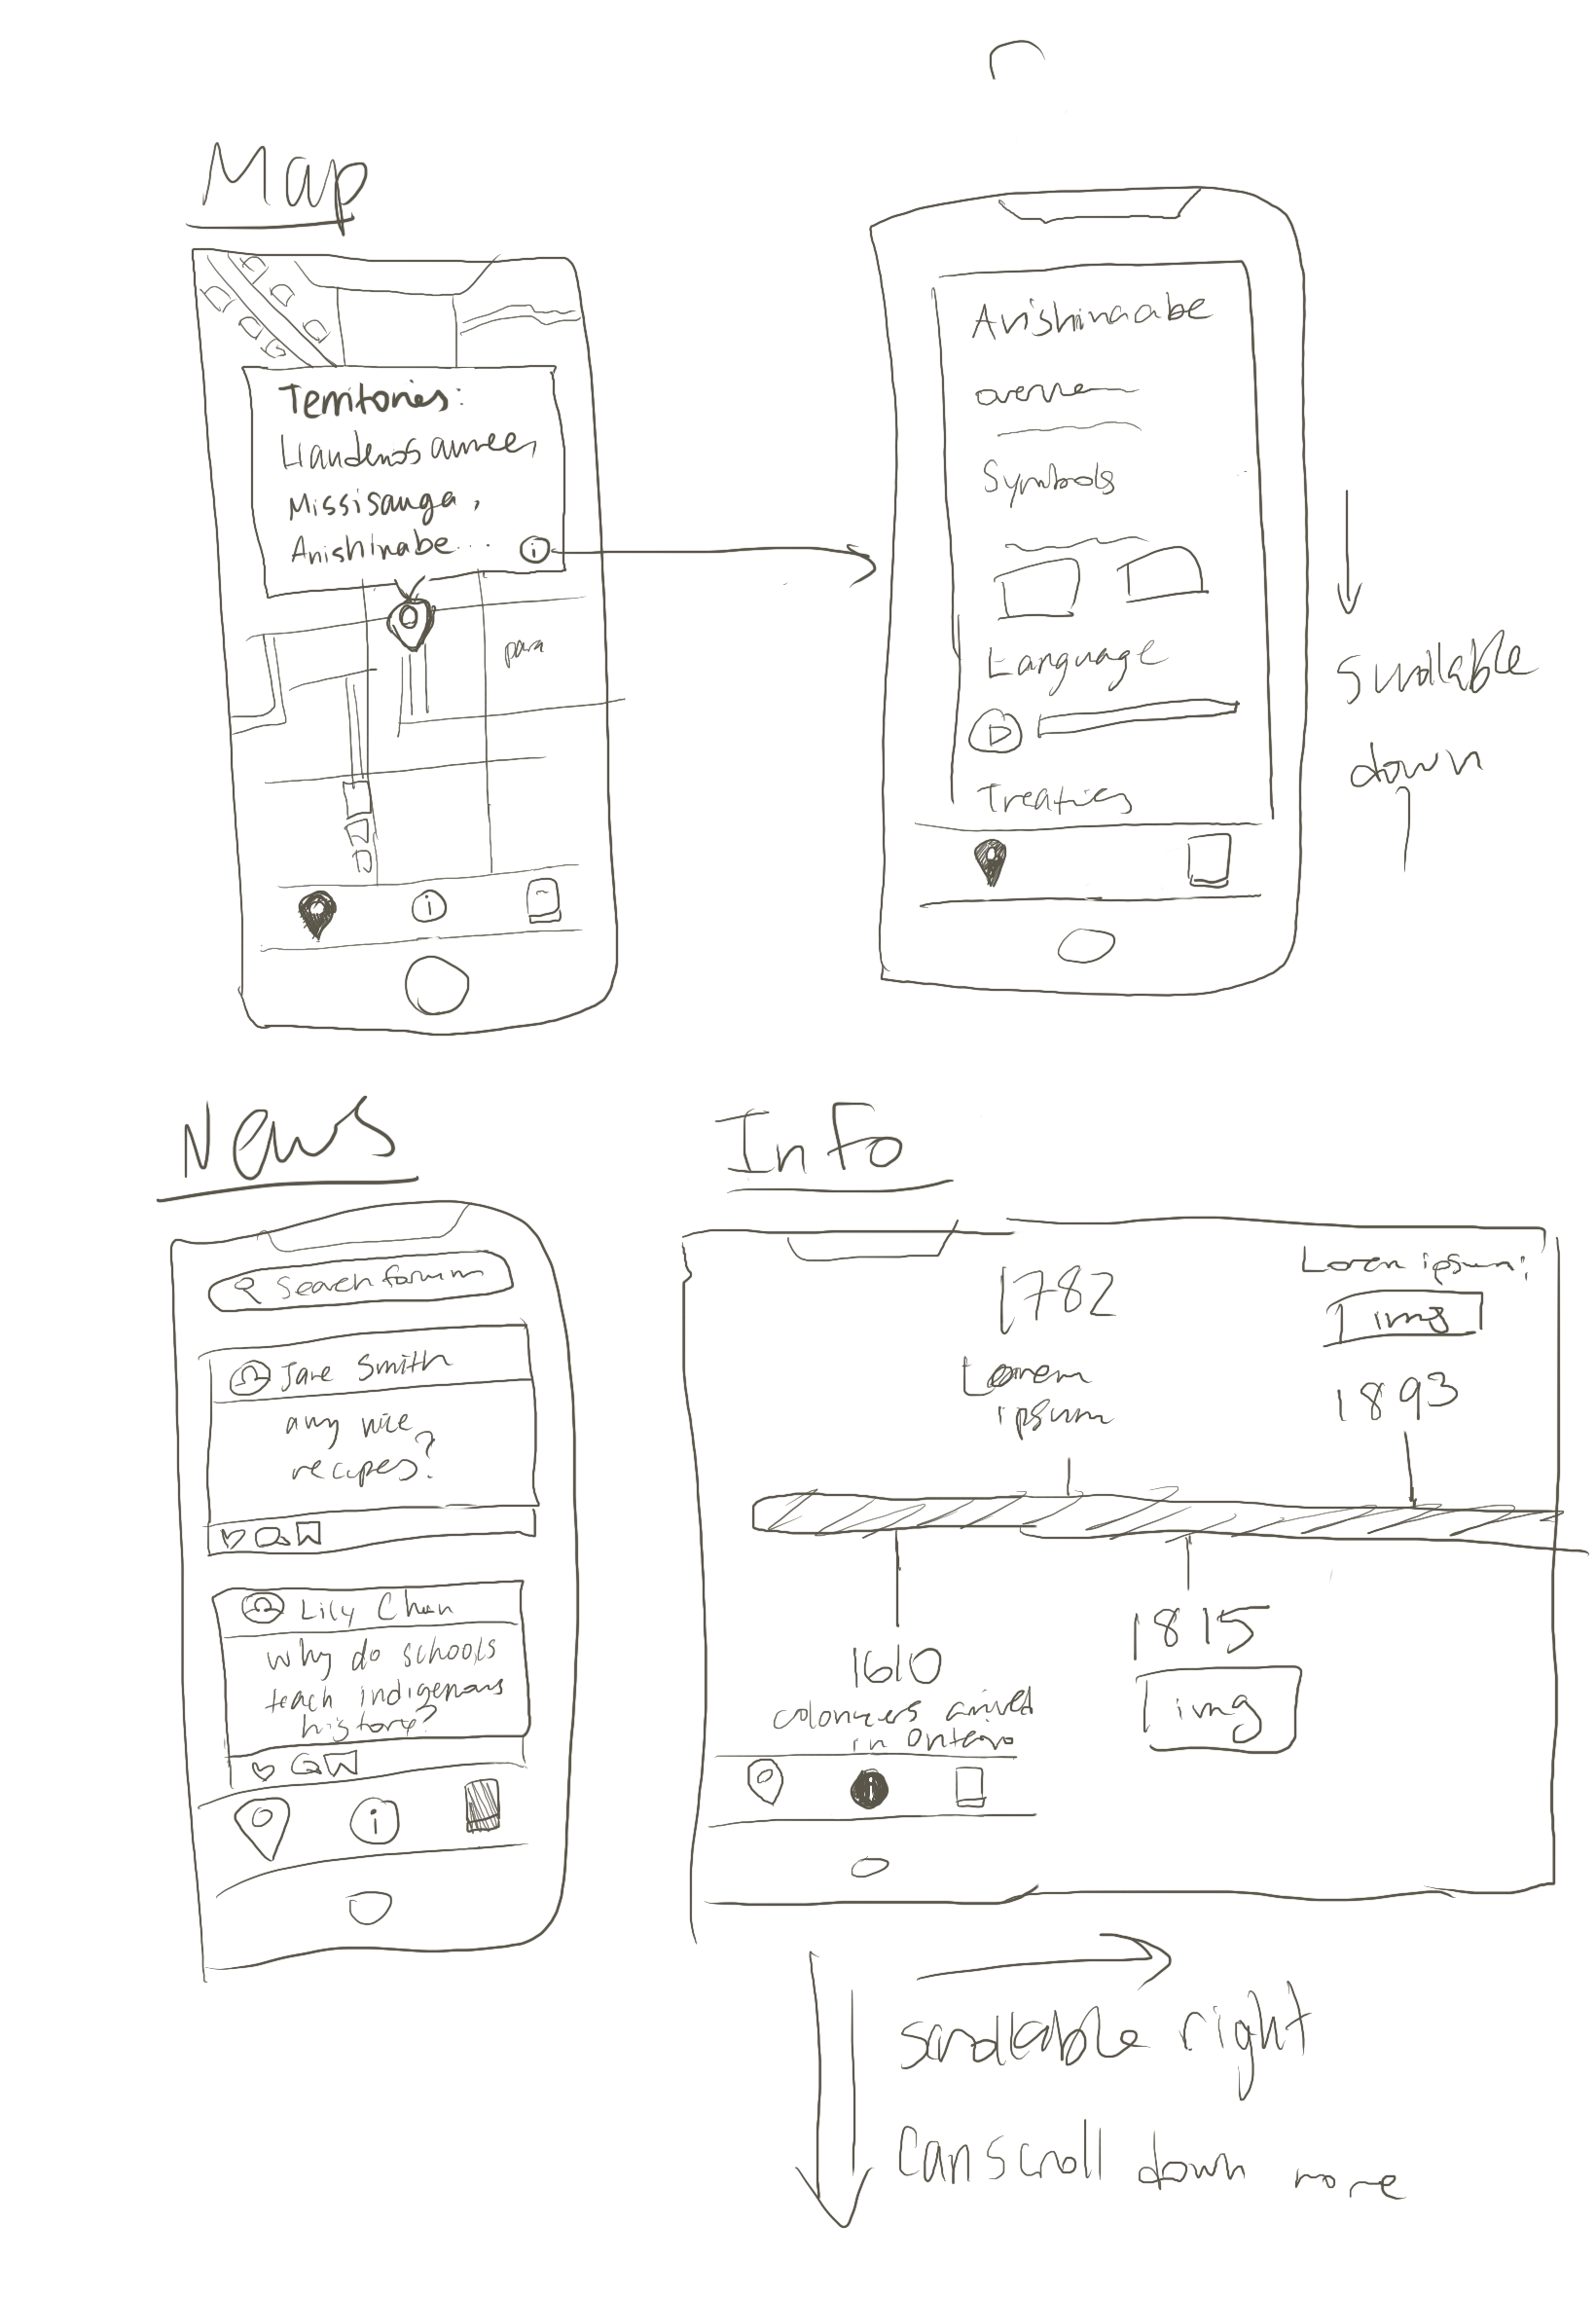 Map
Territories:
Haudenosaunee,
Missisauga,
Anishinabe...
i
Anishinaabe
Symbols
Language
Treaties
scrollable
down
i
News
Search forum
Jane Smith
any nice
recipes?
Lily Chan
why do schools
teach indigenous
history?
i
Info
1782
Lorem
ipsum
Lorem ipsum:
img
1893
1610
colonizers arrived
in Ontario
1815
img
i
scrollable right
can scroll down more